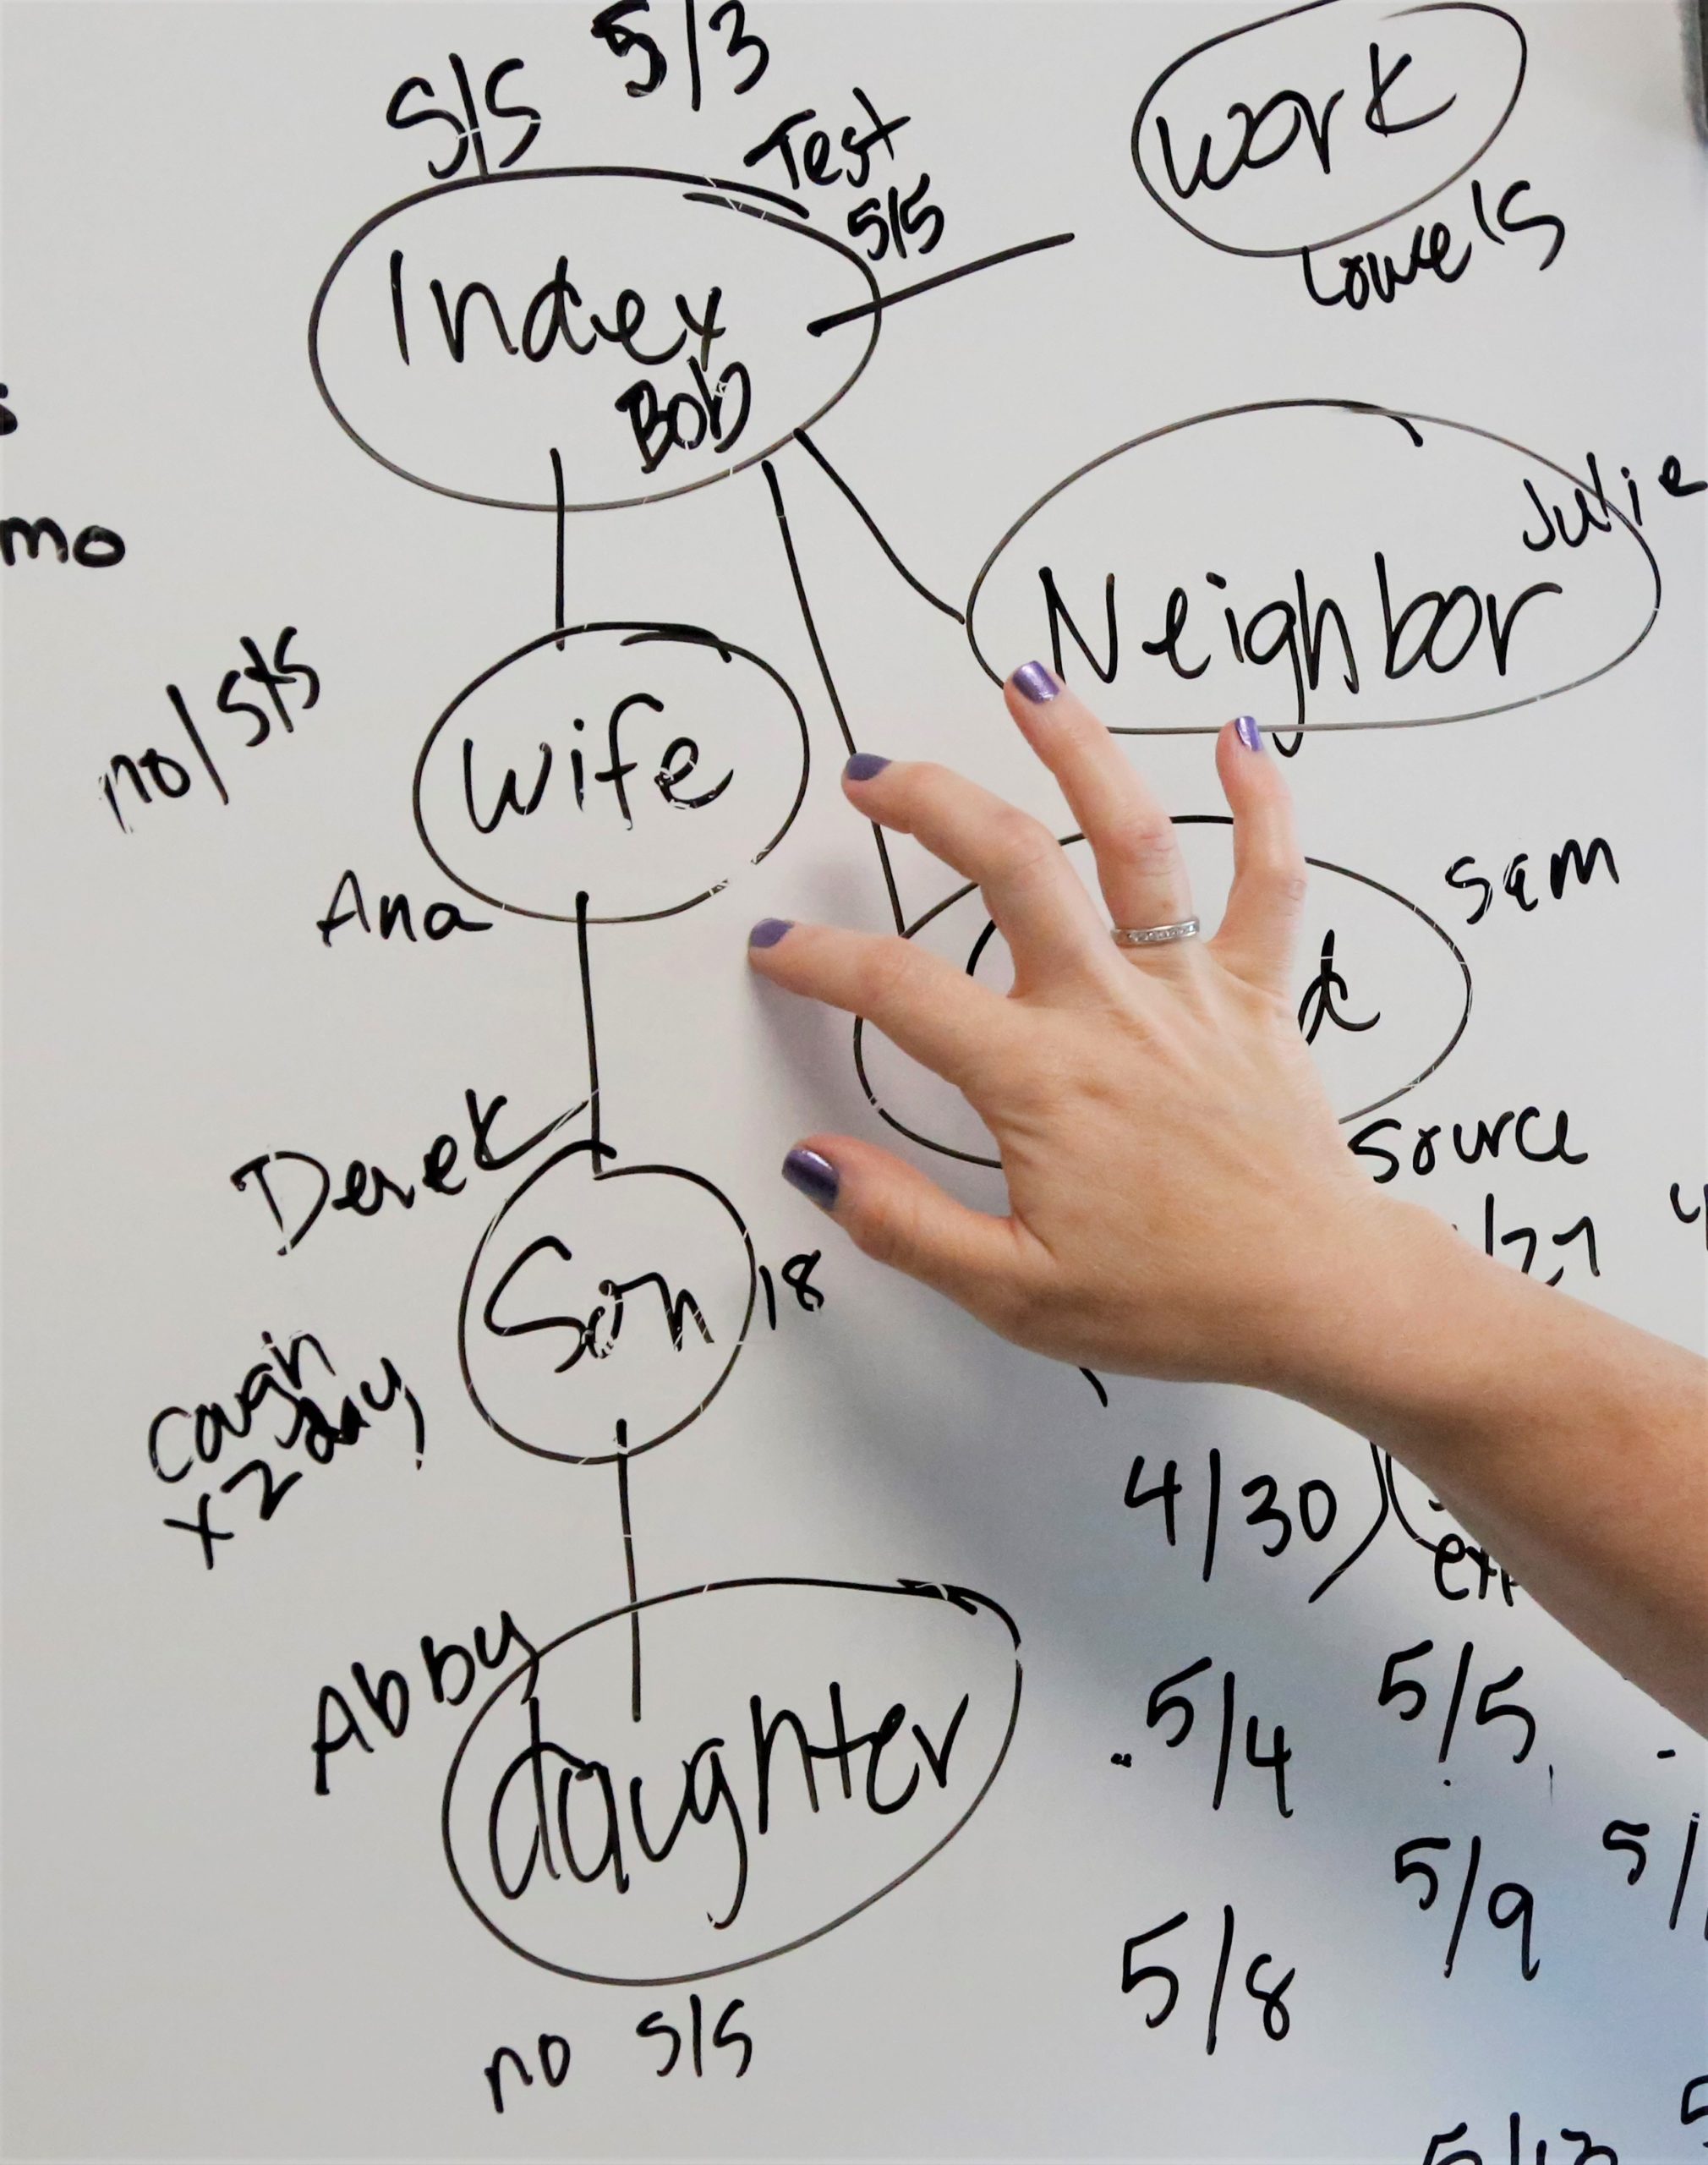 S/S 5/3
Test
5/5
Index
Bob
work
Lowe's
Julie
Neighbor
mo
no/S/S
wife
Ana
Sam
Derek
Son
18
cough
x2 day
source
4/30
Abby
daughter
no S/S
5/4
5/5
5/9
5/8